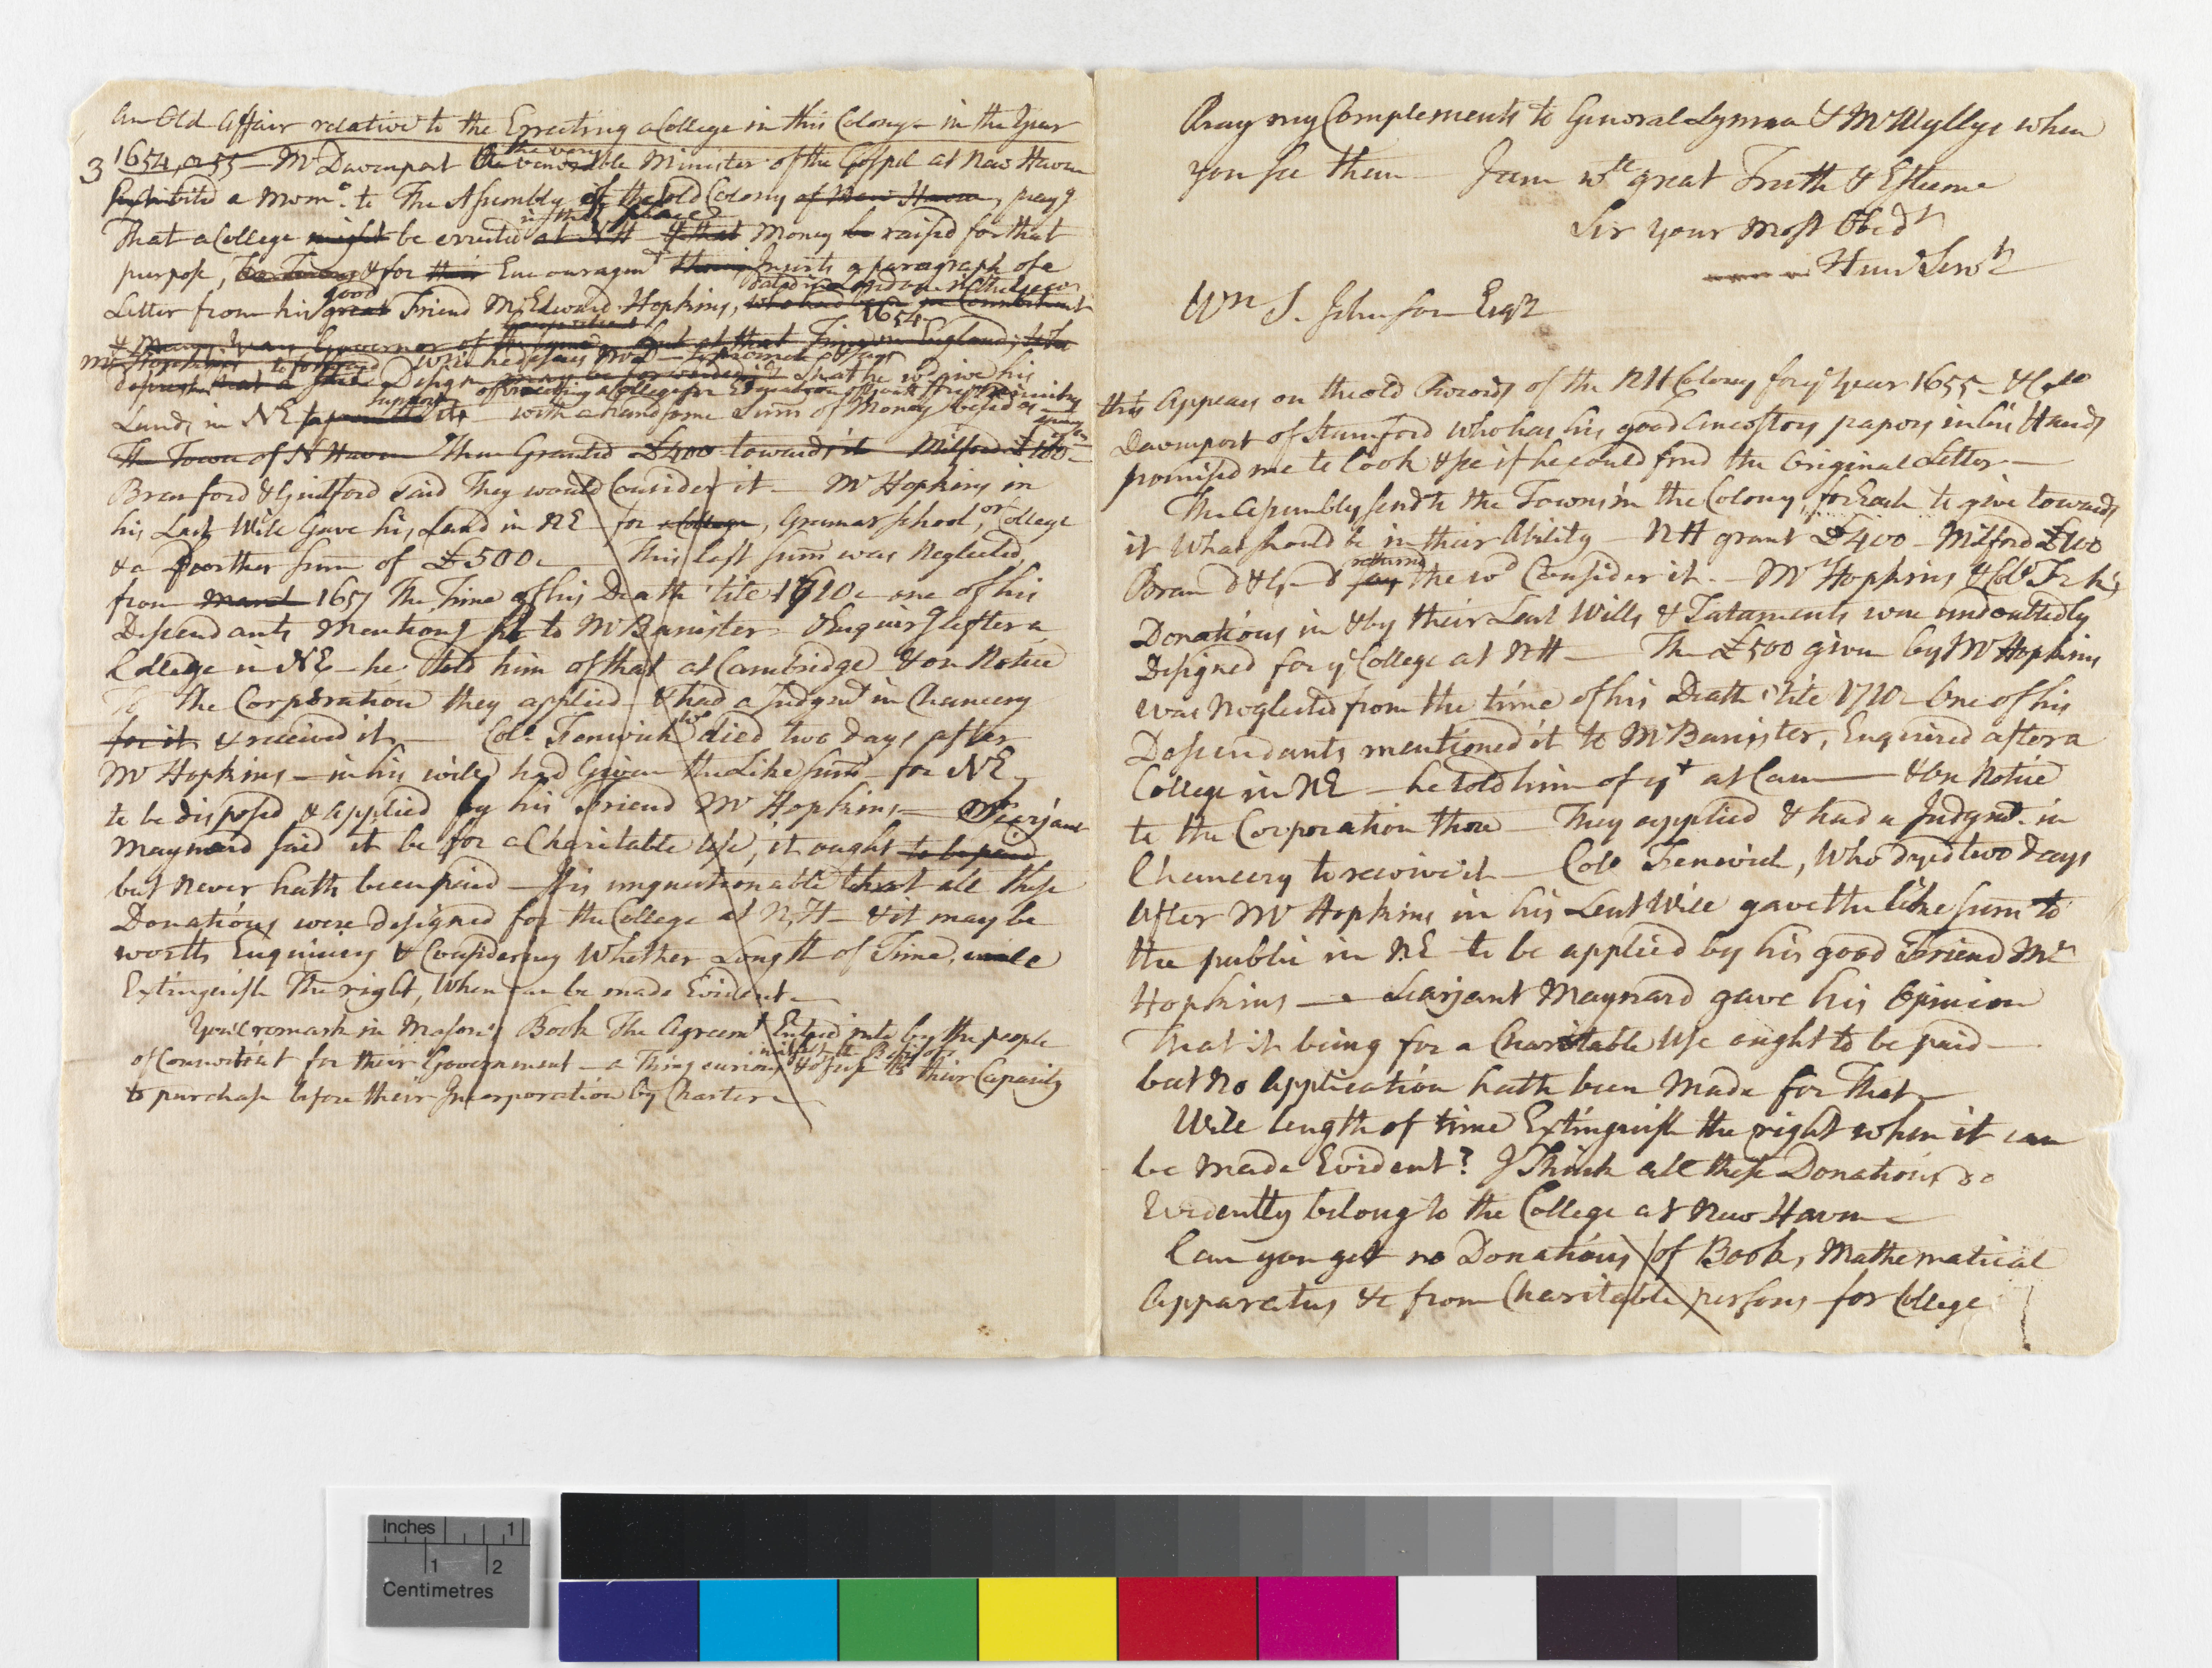 An Old Affair relative to the Errecting a College in this Colony - in the Year
3 1654, or 55 - Mr Davenport the very venerable Minister of the Gospel at New Haven
Exhibited a Mem.o to The Assembly of the old Colony of New Haven, pray.g
in that place
That a College might be errected at NH - & that Money be raised for that
purpose, & for their Encouragemt Inserts a paragraph of a
Letter from his good great Friend Mr Edward Hopkins, who had been
1654
Governor of the but at that Time in England; who
Mr Hopkins
Design that he wd give his
support of erecting a College for Education
Lands in NE - with a handsome Sum of Money besides
The Town of N Haven Then Granted £400 towards it Milford £100
Branford & Guilford said They would Consider it - Mr Hopkins in
his Last Will Gave his Land in NE - for a College, Gramar School, or College
& a further sum of £500 - This last sum was Neglected
from March 1657 The Time of his Death 'till 1710 - one of his
Descendants Mentiong it to Mr Banister & Enquirg after a
College in NE - he told him of that at Cambridge & on Notice
To The Corporation they applied & had a Judgmt in Chancery
for it & received it - Colo Fenwick wo died two days after
Mr Hopkins - in his will had Given the Like sum - for NE
to be disposed & applied by his Friend Mr Hopkins - Searjant
Maynard said it be for a Charitable Use, it ought to be paid
but never hath been paid - It is unquestionable that all these
Donations were designed for the College at N,H - & it may be
worth Enquiring & Considering Whether Length of Time, will
Extinguish The right, When can be made Evident -
You'l remark in Mason's Book The Agreemt Entred into by the people
of Connecticut for their Government - a Thing curious & of use to their Capacity
to purchase before their Incorporation by Charter -
Pray my Complements to General Lyman & Mr Wyllys when
you see them - I am wth great Truth & Esteeme
Sir Your Most Obedt
Hum Servt
Wm S. Johnson Esqr
this Appears on the old Records of the NH Colony for ye Year 1655 - & Colo
Davenport of Stamford who has his good Ancestors papers in his Hands
promised me to look & see if he could find the Original Letter -
The Assembly send to the Towns in the Colony, for Each to give towards
it What should be in their Ability - NH grant £400 - Milford £100
returned
Bran d & G d say the wd Consider it. - Mr Hopkins & Colo F k's
Donations in & by their Last Wills & Tataments were undoubtedly
Designed for ye College at NH - The £500 given by Mr Hopkins
was Neglected from the time of his Death 'till 1710 - One of his
Descendants mentioned it to Mr Banister, Enquired after a
College in NE - he told him of yt at Cam — & on Notice
to the Corporation there - They applied & had a Judgmt. in
Chancery to receive it - Colo Fenwick, Who dyed two days
After Mr Hopkins in his Last Will gave the like sum to
the public in NE - to be applied by his good Friend Mr
Hopkins — Searjant Maynard gave his Opinion
That it being for a Charitable Use ought to be paid -
but no Application hath been Made for That -
Will length of time Extinguish the right when it can
be made Evident? I Think all these Donations do
Evidently belong to the College at New Haven -
Can you get no Donations of Books, Mathematical
Apparatus &c from Charitable persons for College
Inches 1
1 2
Centimetres